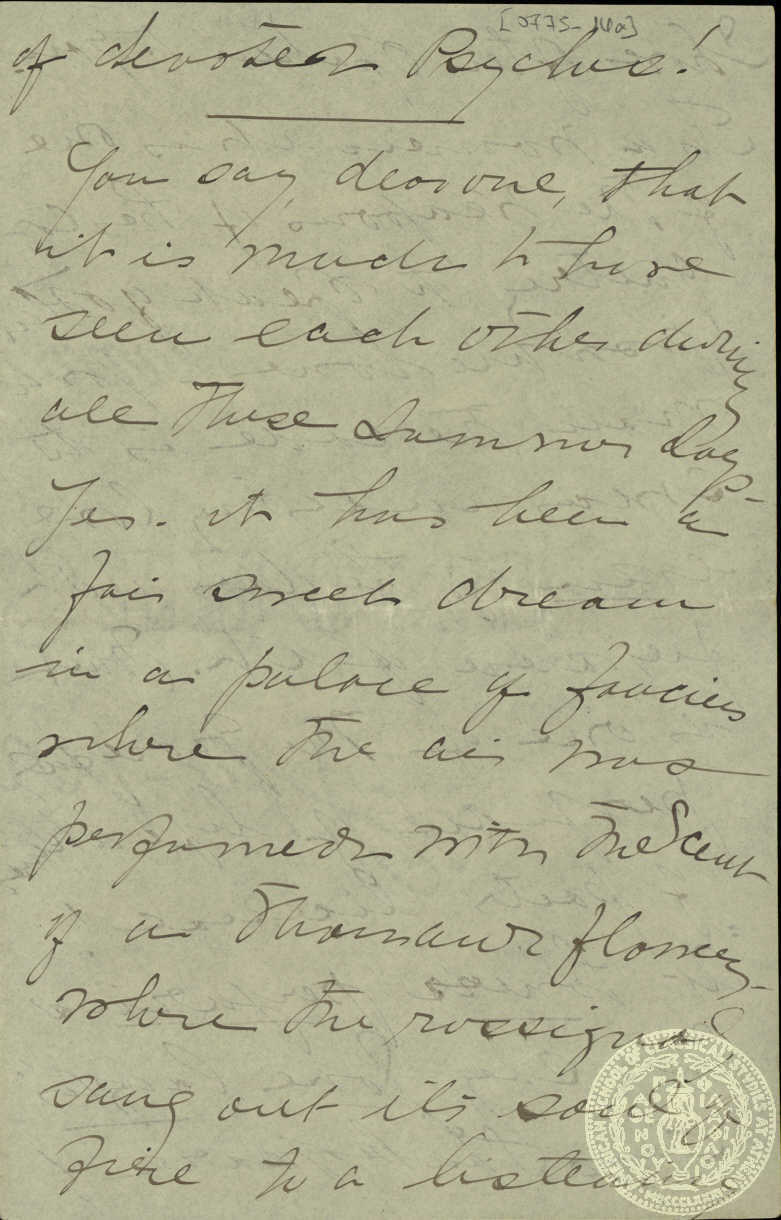 [0775-14a]
of devoted Psyches!
You say, dear one, that
it is much to have
seen each other during
all these Summer days-
Yes. it has been a
fair sweet dream
in a palace of fancies
where the air was
perfumed with the Scent
of a thousand flowers-
where the rossignol
sang out its soul of
fire to a listening